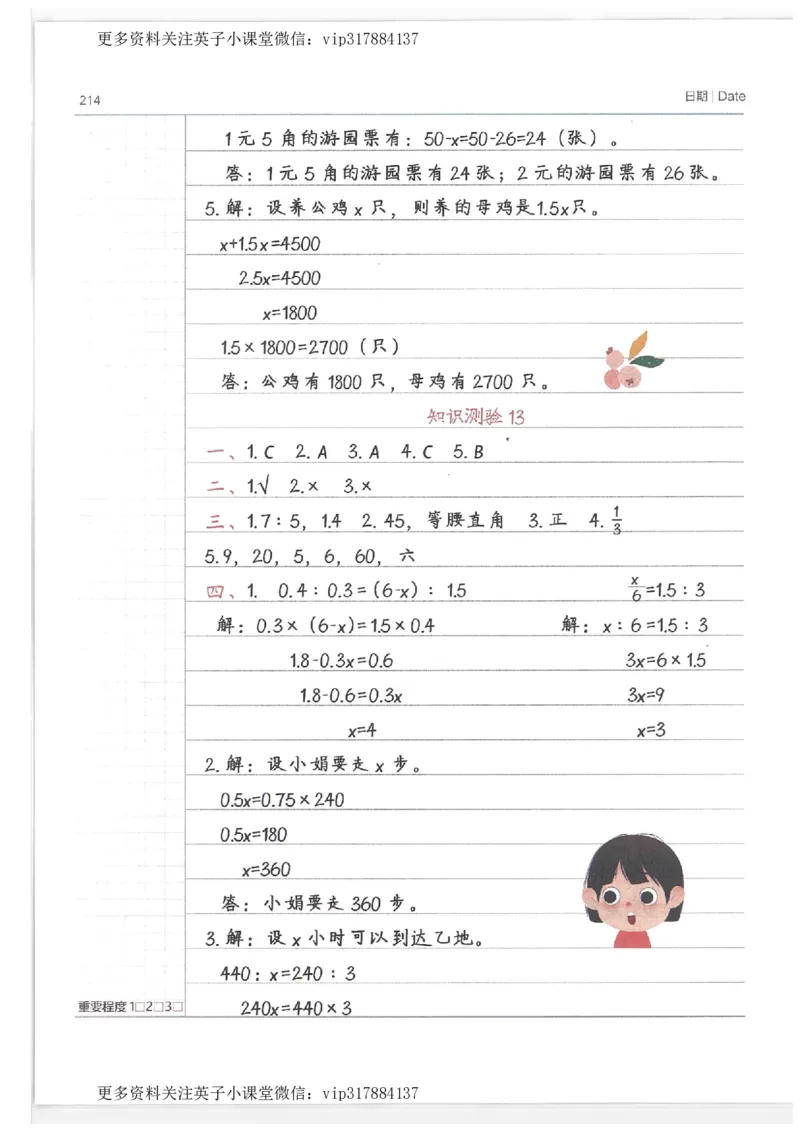 更多资料关注英子小课堂微信：vip317884137
214
日期 | Date
1元5角的游园票有：50-x=50-26=24（张）。
答：1元5角的游园票有24张；2元的游园票有26张。
5.解：设养公鸡x只，则养的母鸡是1.5x只。
x+1.5x=4500
2.5x=4500
x=1800
1.5×1800=2700（只）
答：公鸡有1800只，母鸡有2700只。
知识测验13
一、1.C 2.A 3.A 4.C 5.B
二、1.√ 2.× 3.×
三、1.7：5，1.4 2.45，等腰直角 3.正 4.1/3
5.9，20，5，6，60，六
四、1. 0.4：0.3=(6-x)：1.5 x/6=1.5：3
解：0.3×(6-x)=1.5×0.4 解：x：6=1.5：3
1.8-0.3x=0.6 3x=6×1.5
1.8-0.6=0.3x 3x=9
x=4 x=3
2.解：设小娟要走x步。
0.5x=0.75×240
0.5x=180
x=360
答：小娟要走360步。
3.解：设x小时可以到达乙地。
440：x=240：3
240x=440×3
重要程度1□2□3□
更多资料关注英子小课堂微信：vip317884137